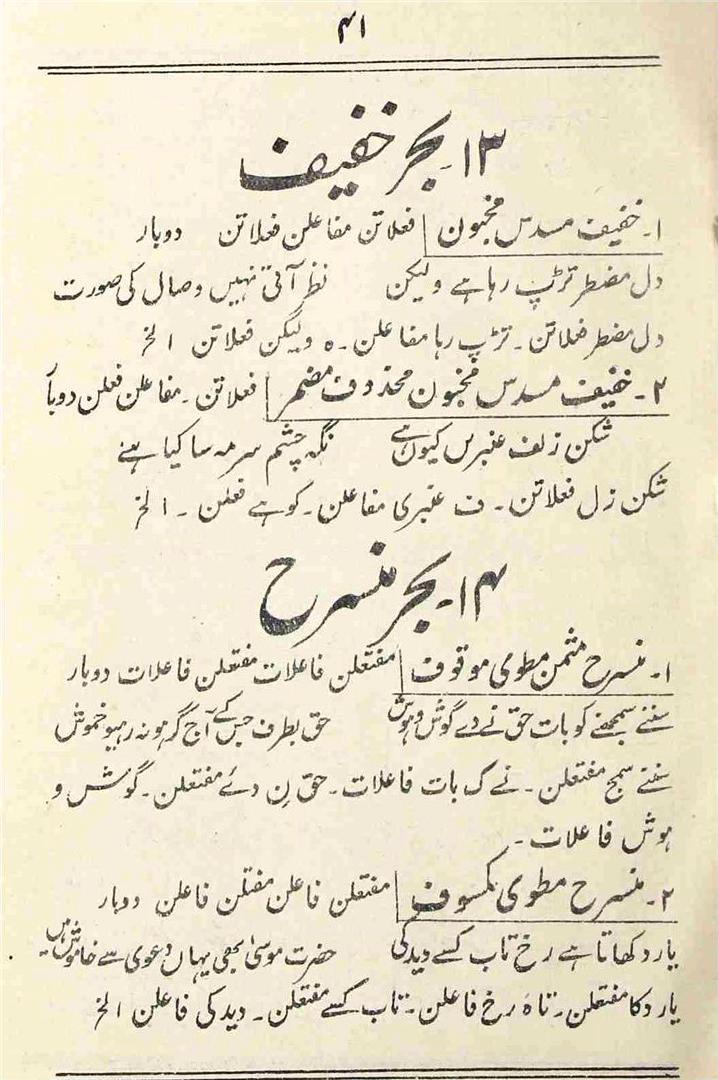 ۴۱
۱۳۔ بحر خفیف
۱۔ خفیف مسدس مخبون فعلاتن مفاعلن فعلاتن دوبار
دل مضطر تڑپ رہا ہے ولیکن نظر آتی نہیں وصال کی صورت
دل مضطر فعلاتن۔ تڑپ رہا مفاعلن۔ ہ ولیکن فعلاتن الخ
۲۔ خفیف مسدس مخبون محذوف مضمر فعلاتن۔ مفاعلن فعلن دوبار
شکن زلف عنبریں کیوں ہے نگہ چشم سرمہ سا کیا ہے
شکن زل فعلاتن۔ ف عنبری مفاعلن۔ کو ہے فعلن۔ الخ
۱۴۔ بحر منسرح
۱۔ منسرح مثمن مطوی موقوف مفتعلن فاعلات مفتعلن فاعلات دوبار
سننے سمجھنے کو بات حق نے دے گوش و ہوش حق بطرف جس کے آج گر ہو نہ رہیو خموش
سننے سمج مفتعلن۔ نے ک بات فاعلات۔ حق نِ دئے مفتعلن۔ گوش و
ہوش فاعلات۔
۲۔ منسرح مطوی مکسوف مفتعلن فاعلن مفتلن فاعلن دوبار
یار دکھاتا ہے رخ تاب کسے دید کی حضرت موسیٰ بھی یہاں دعوی سے خاموش ہیں۔
یار دکا مفتعلن۔ تاہ رخ فاعلن۔ تاب کسے مفتعلن۔ دید کی فاعلن الخ